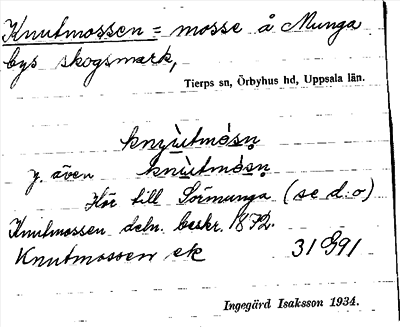 Knutmossen = mosse å Munga
bys skogsmark,
Tierps sn, Örbyhus hd, Uppsala län.
knyùtmòsn̥
y. även knùtmòsn̥
Hör till Sörmunga (se d:o)
Knutmossen deln. beskr. 1872.
Knutmossen ek 31 G91
Ingegärd Isaksson 1934.